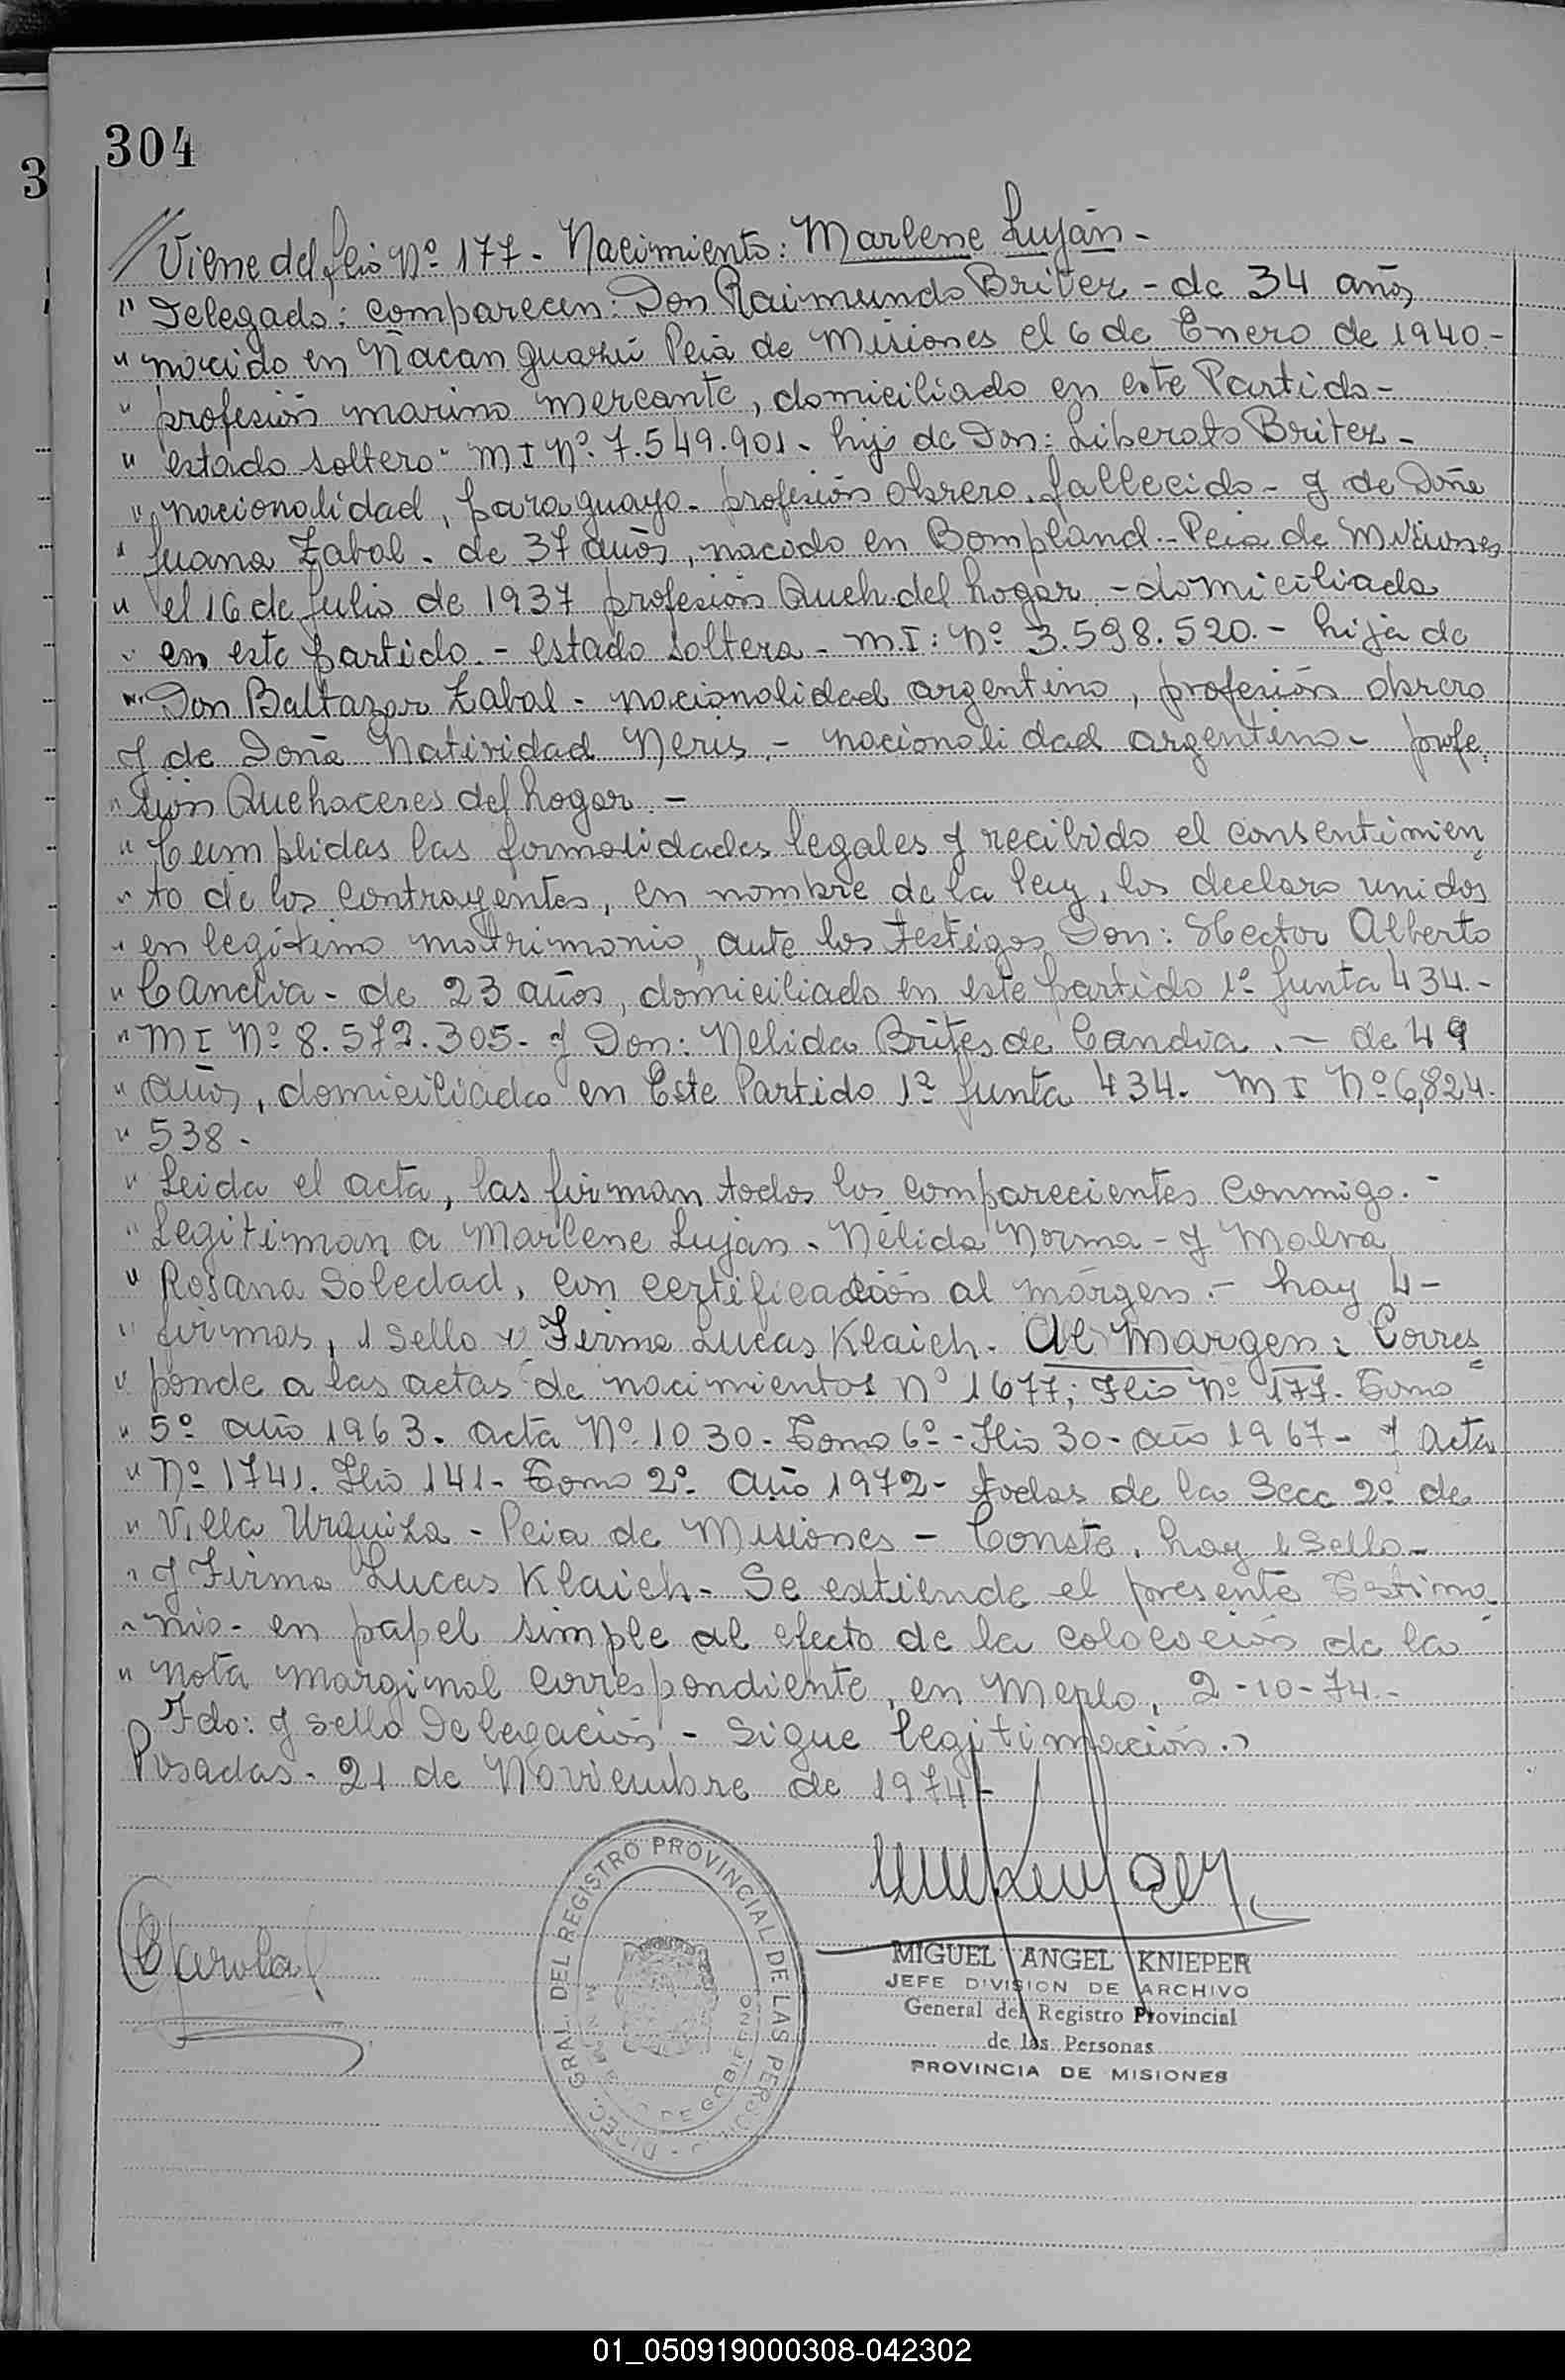 304
3
// Viene del flio Nº 177 - Nacimiento: Marlene Luján -
" Delegado: Comparecen: Don Raimundo Britez - de 34 años
" nacido en Ñacan guazú Pcia de Misiones el 6 de Enero de 1940.-
" profesión marino mercante, domiciliado en este Partido -
" estado soltero - M I Nº 7.549.901 - hijo de Don: Liberato Britez -
" nacionalidad, paraguayo - profesión obrero, fallecido - y de Doña
" Juana Zabal - de 37 años, nacida en Bompland - Pcia de Misiones
" el 16 de Julio de 1937 profesión Queh. del hogar - domiciliada
" en este partido. - estado soltera - M I: Nº 3.598.520. - hija de
" Don Baltazar Zabal - nacionalidad argentino, profesión obrero
y de Doña Natividad Neris, - nacionalidad argentina - profe=
" sión Quehaceres del hogar. -
" Cumplidas las formalidades legales y recibido el consentimien=
" to de los contrayentes, en nombre de la ley, los declaro unidos
" en legítimo matrimonio, ante los testigos Don: Hector Alberto
" Candia - de 23 años, domiciliado en este partido 1º Junta 434. -
" M I Nº 8.572.305 - y Don: Nelida Brites de Candia. - de 49
" años, domiciliada en Este Partido 1ª Junta 434. M I Nº 6,824.
" 538 -
" Leida el acta, las firman todos los comparecientes conmigo. -
" Legitiman a Marlene Luján - Nélida Norma - y Malva
" Rosana Soledad, con certificación al márgen. - hay 4 -
" firmas, 1 sello y Firma Lucas Klaich. Al Margen: Corres=
" ponde a las actas de nacimientos nº 1677; Flio Nº 177. Tomo
" 5º año 1963. acta Nº 1030 - Tomo 6º - Flio 30 - año 1967 - y Acta
" Nº 1741. Flio 141 - Tomo 2º. Año 1972 - todas de la Secc 2º de
" Villa Urquiza - Pcia de Misiones - Conste, hay 1 Sello -
" y Firma Lucas Klaich - Se extiende el presente Testimo=
" nio - en papel simple al efecto de la colocación de la
" nota marginal correspondiente, en Merlo, 2-10-74. -
Fdo: y sello Delegación - Sigue legitimación.
Posadas - 21 de Noviembre de 1974 -
DIREC. GRAL. DEL REGISTRO PROVINCIAL DE LAS PERSONAS
DE GOBIERNO
MIGUEL ANGEL KNIEPER
JEFE DIVISION DE ARCHIVO
General del Registro Provincial
de las Personas
PROVINCIA DE MISIONES
01_050919000308-042302